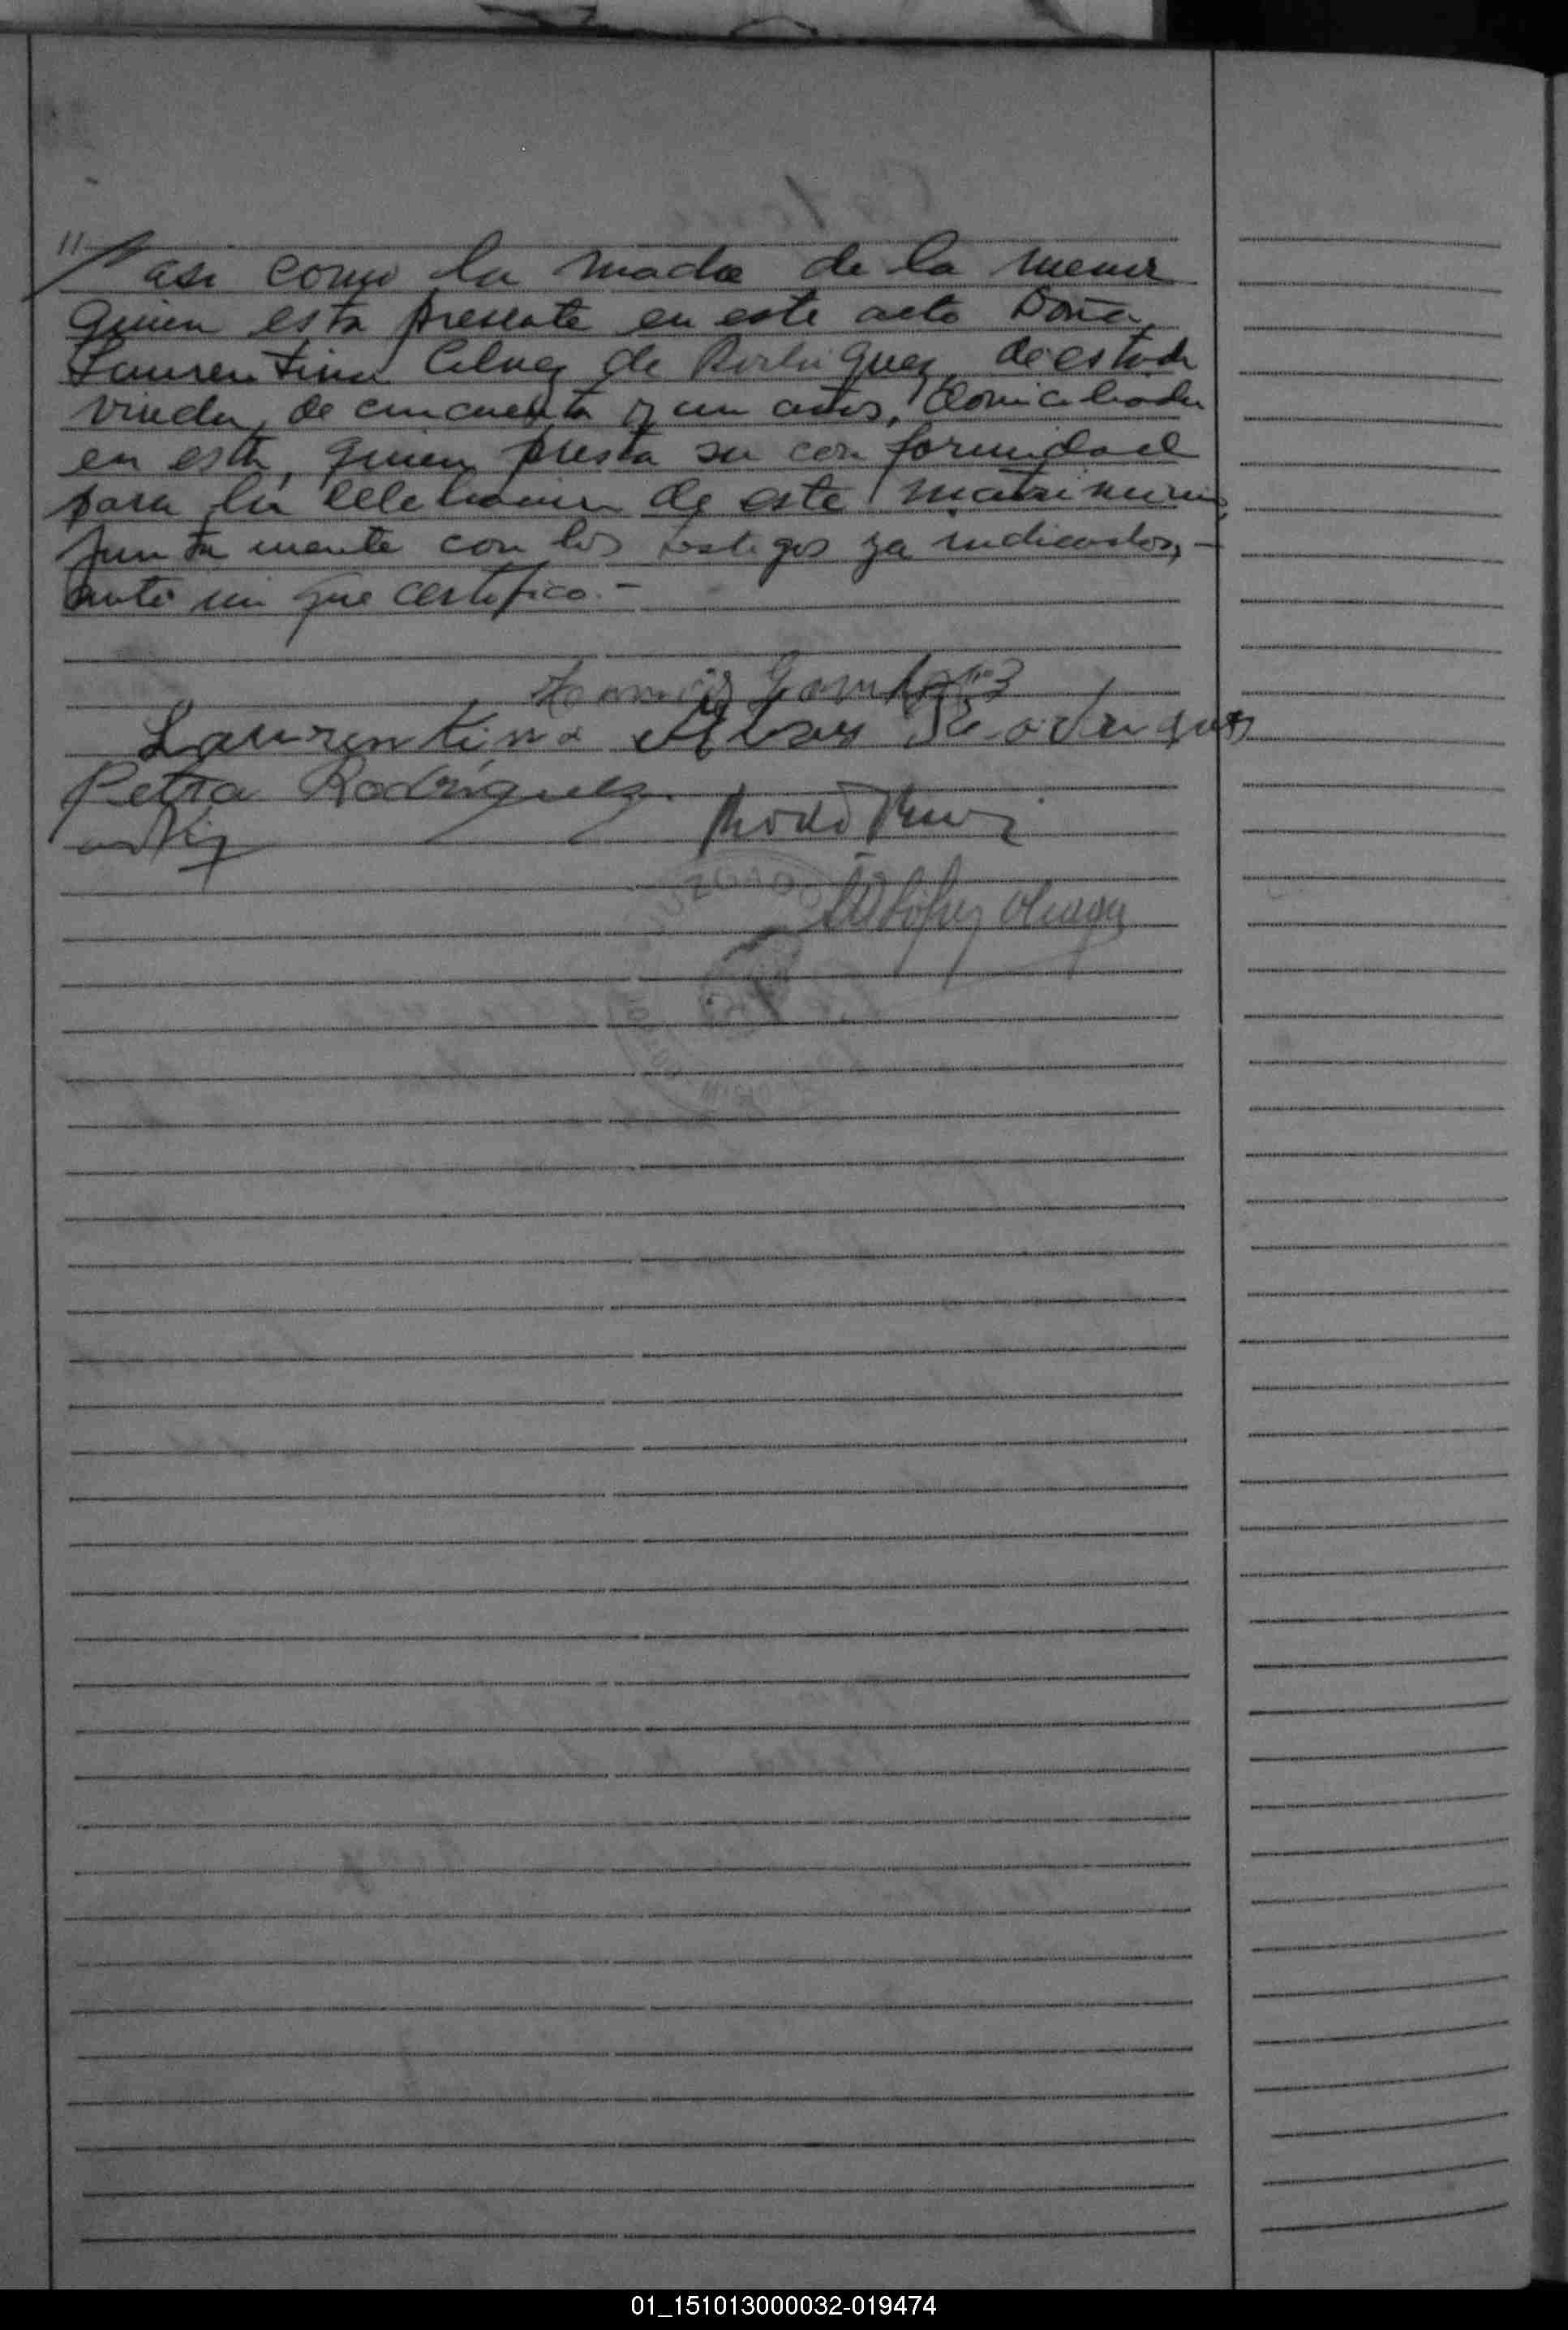 " asi como la madre de la menor
quien esta presente en este acto Doña
Laurentina de Rodriguez, de estado
viuda, de cincuenta y un años, domiciliada
en esta, quien presta su conformidad
para la celebracion de este matrimonio,
junta mente con los testigos ya indicados, -
ante mi que certifico. -
Laurentina Rodrigues
Petra Rodríguez.
01_151013000032-019474